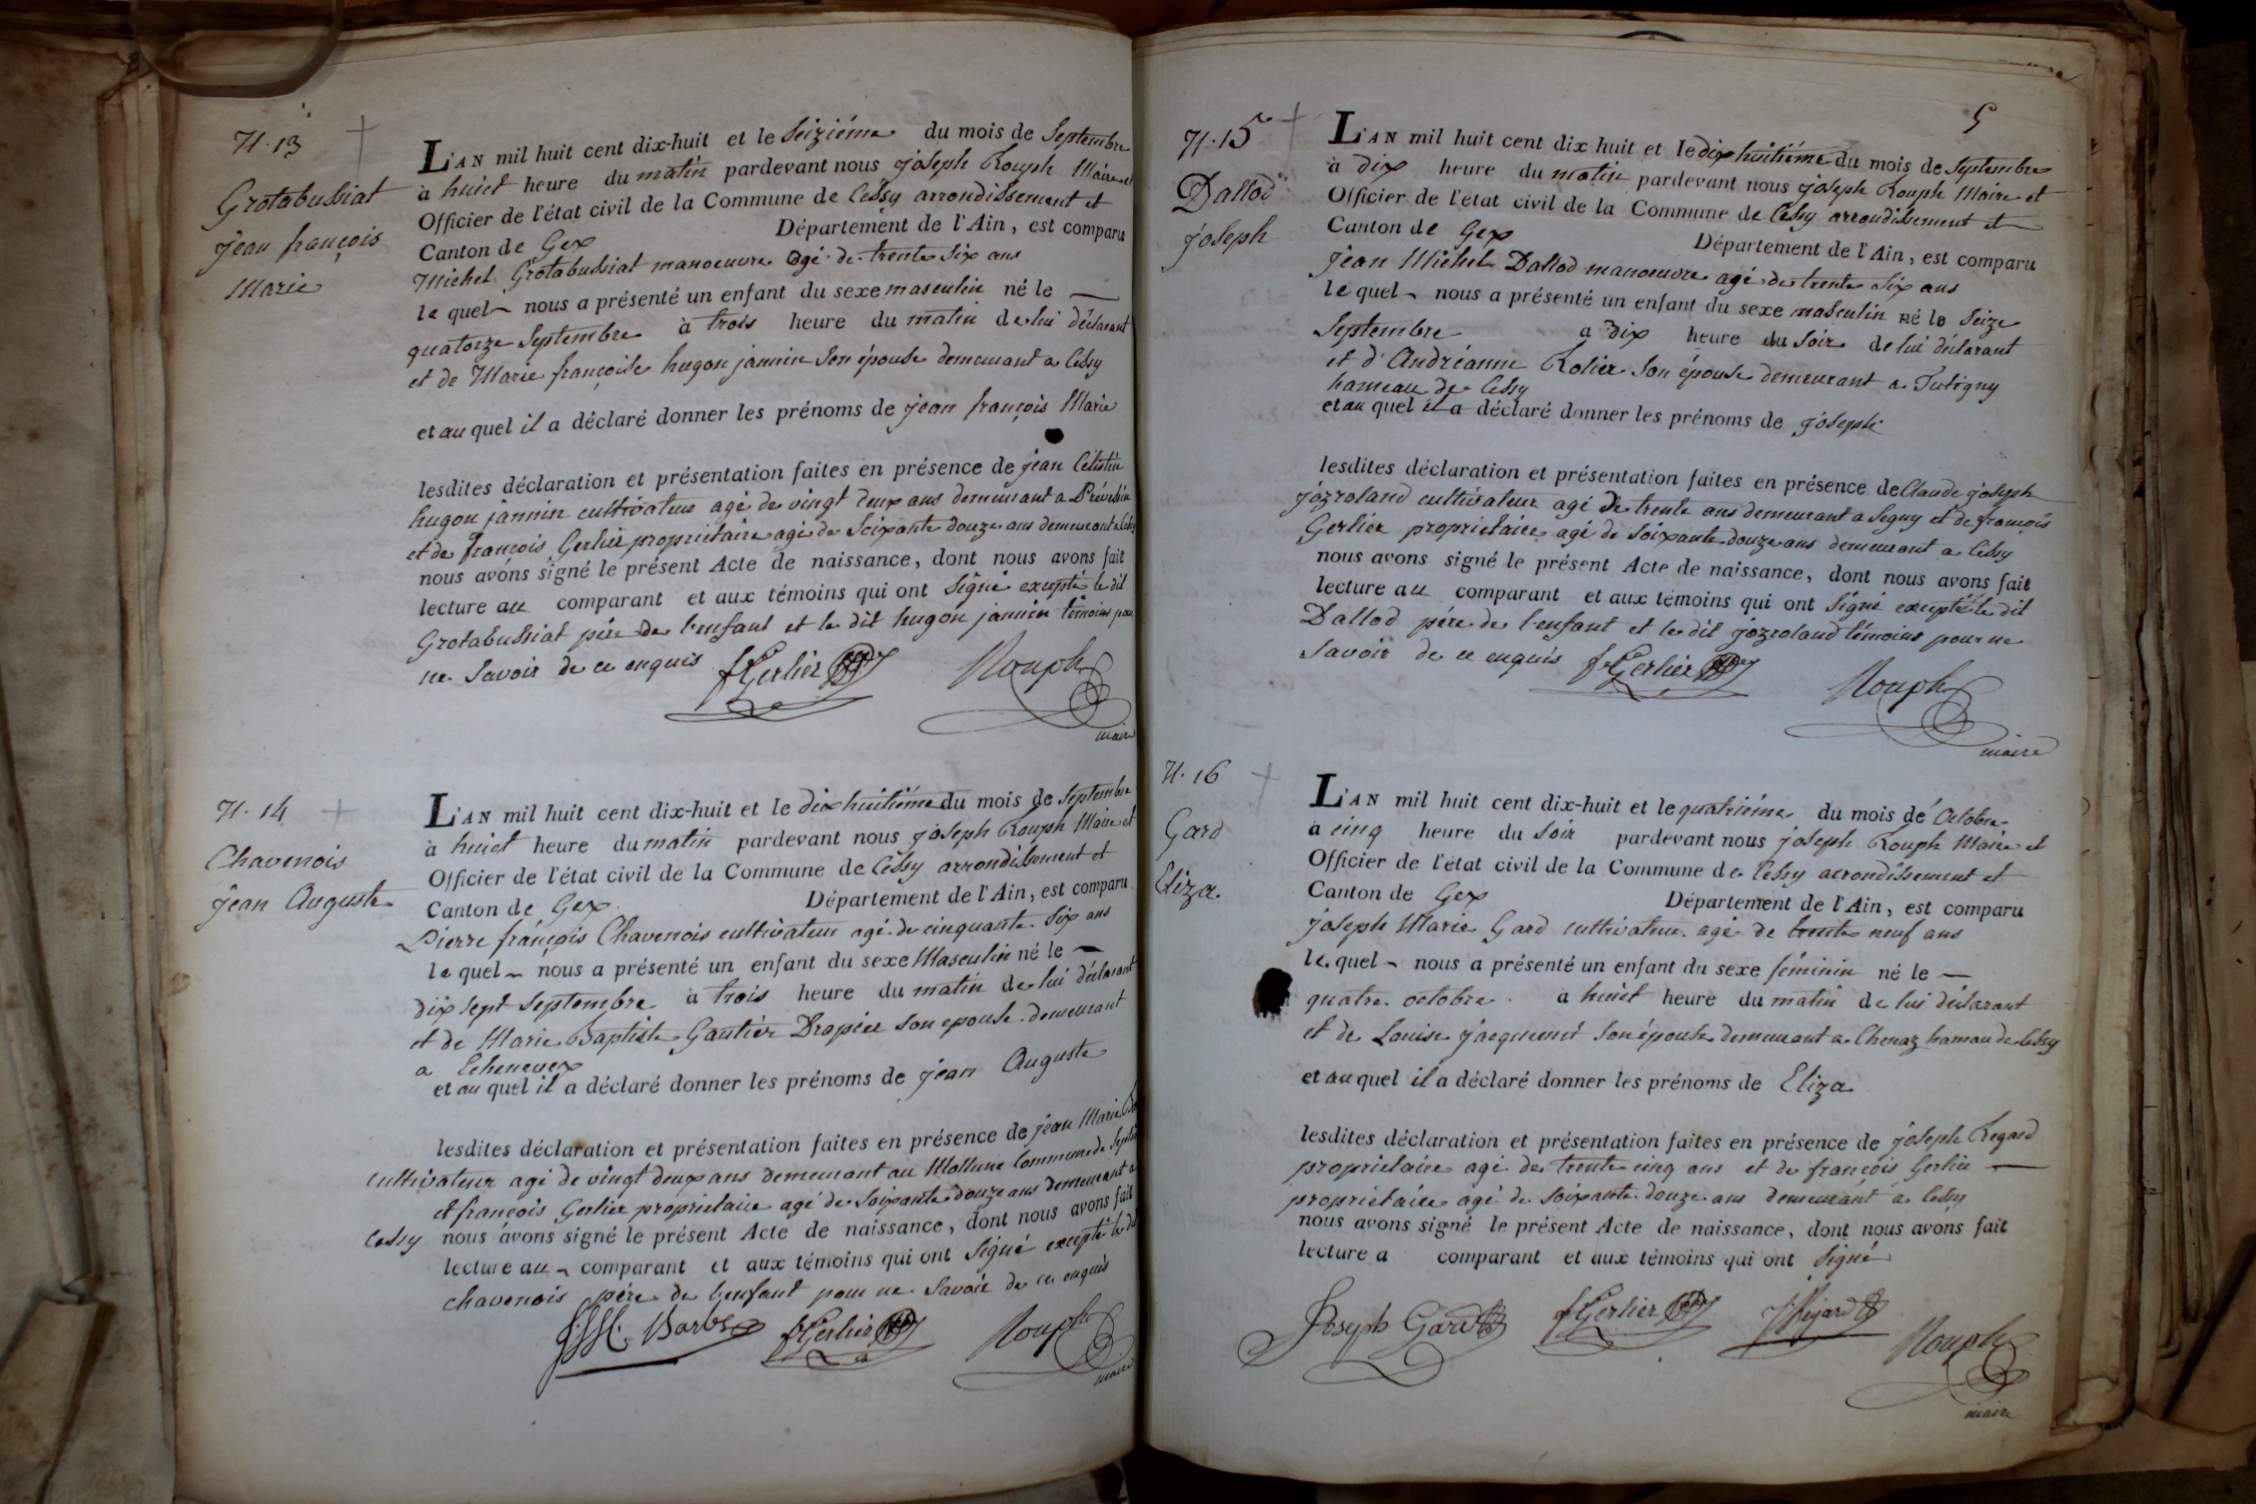 N. 13
Grotabussiat
jean françois
Marie
L'AN mil huit cent dix-huit et le Seiziéme du mois de Septembre
à huict heure du matin pardevant nous joseph Rouph Maire et
Officier de l'état civil de la Commune de Cessy arrondissement et
Canton de Gex Département de l'Ain, est comparu
Michel Grotabussiat manoeuvre agé de trente six ans
le quel nous a présenté un enfant du sexe masculin né le
quatorze Septembre à trois heure du matin de lui déclarant
et de Marie françoise hugon jannin Son épouse demeurant a Cessy
et au quel il a déclaré donner les prénoms de jean françois Marie
lesdites déclaration et présentation faites en présence de jean Célestin
hugon jannin cultivateur agé de vingt deux ans demeurant a
et de françois Gerlier proprietaire agé de Soixante douze ans demeurant a Cessy
nous avons signé le présent Acte de naissance, dont nous avons fait
lecture au comparant et aux témoins qui ont Signé excepté le dit
Grotabussiat pére de l'enfant et le dit hugon jannin témoins pour
ne Savoir de ce enquis f Gerlier Rouph
maire
N. 14
Chavenois
jean Auguste
L'AN mil huit cent dix-huit et le dix huitiéme du mois de Septembre
à huict heure du matin pardevant nous joseph Rouph Maire et
Officier de l'état civil de la Commune de Cessy arrondissement et
Canton de Gex Département de l'Ain, est comparu
Pierre françois Chavenois cultivateur agé de cinquante Six ans
le quel nous a présenté un enfant du sexe Masculin né le
dix sept Septembre à trois heure du matin de lui déclarant
et de Marie Baptiste Gautier Drapier son epouse demeurant
a Echenevex
et au quel il a déclaré donner les prénoms de jean Auguste
lesdites déclaration et présentation faites en présence de jean Marie
cultivateur agé de vingt deux ans demeurant au Commune de
et françois Gerlier proprietaire agé de Soixante douze ans demeurant a
Cessy nous avons signé le présent Acte de naissance, dont nous avons fait
lecture au comparant et aux témoins qui ont Signé excepté le dit
chavenois pére de l'enfant pour ne Savoir de ce enquis
f Gerlier Rouph
maire
5
N. 15
Dallod
joseph
L'AN mil huit cent dix huit et le dix huitiéme du mois de Septembre
à dix heure du matin pardevant nous joseph Rouph Maire et
Officier de l'état civil de la Commune de Cessy arrondissement et
Canton de Gex Département de l'Ain, est comparu
jean Michel Dallod manoeuvre agé de trente Six ans
le quel nous a présenté un enfant du sexe masculin né le Seize
Septembre a dix heure du Soir de lui déclarant
et d'Andréanne Rolier Son épouse demeurant a Tutigny
hameau de Cessy
et au quel il a déclaré donner les prénoms de joseph
lesdites déclaration et présentation faites en présence de Claude joseph
jozroland cultivateur agé de trente ans demeurant a Segny et de françois
Gerlier proprietaire agé de Soixante douze ans demeurant a Cessy
nous avons signé le présent Acte de naissance, dont nous avons fait
lecture au comparant et aux témoins qui ont Signé excepté le dit
Dallod pére de l'enfant et le dit jozroland témoins pour ne
Savoir de ce enquis f Gerlier Rouph
maire
N. 16
Gard
Eliza.
L'AN mil huit cent dix-huit et le quatriéme du mois de Octobre
à cinq heure du Soir pardevant nous joseph Rouph Maire et
Officier de l'état civil de la Commune de Cessy arrondissement et
Canton de Gex Département de l'Ain, est comparu
joseph Marie Gard cultivateur agé de trente neuf ans
le quel nous a présenté un enfant du sexe féminin né le
quatre octobre a huict heure du matin de lui déclarant
et de Louise jacquemet Son épouse demeurant a Chenaz hameau de Cessy
et au quel il a déclaré donner les prénoms de Eliza
lesdites déclaration et présentation faites en présence de joseph Regard
proprietaire agé de trente cinq ans et de françois Gerlier
proprietaire agé de soixante douze ans demeurant a Cessy
nous avons signé le présent Acte de naissance, dont nous avons fait
lecture a comparant et aux témoins qui ont Signé
Joseph Gard f Gerlier J Regard Rouph
maire